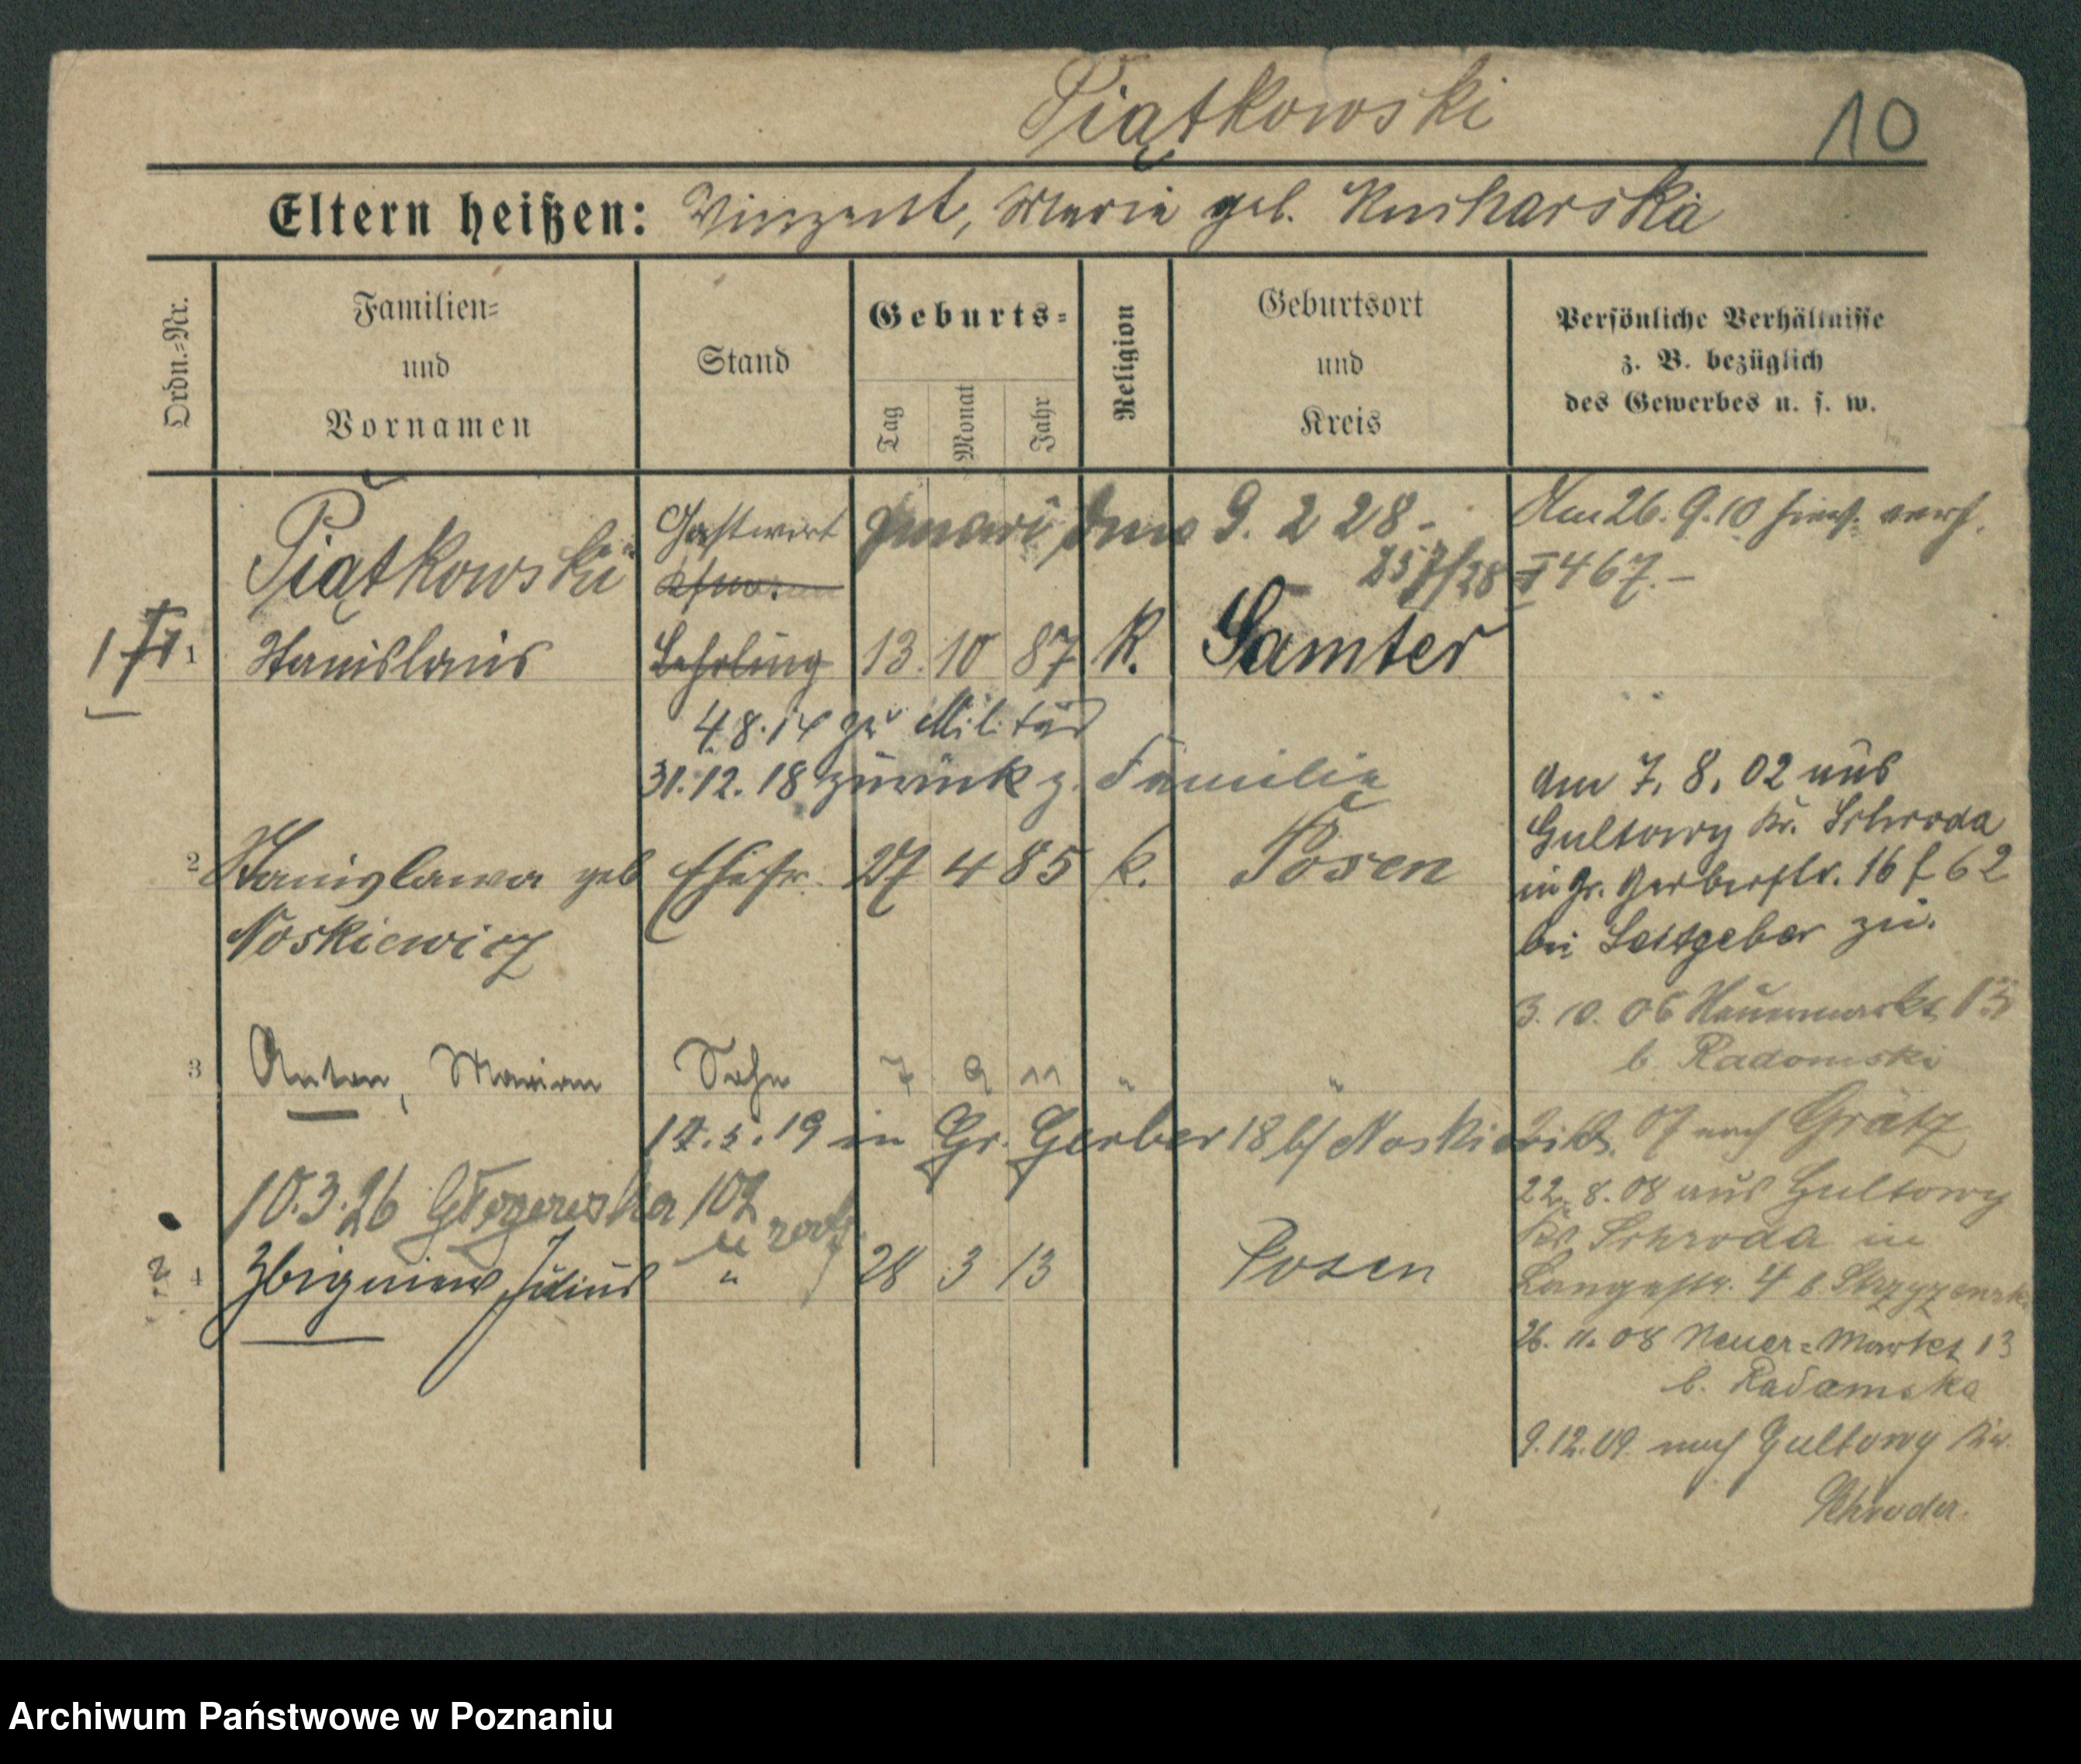 Piątkowski
10
Eltern heißen: Vinzent, Maria geb. Kucharska
Ordn.-Nr.
Familien-
und
Vornamen
Stand
Geburts-
Tag
Monat
Jahr
Religion
Geburtsort
und
Kreis
Persönliche Verhältnisse
z. B. bezüglich
des Gewerbes u. s. w.
Piątkowski
Gastwirt
zmarł dnia 9. 2 28-
257/28
Am 26. 9. 10 hier verh.
467.-
1 Stanislaus
Lehrling
13. 10 87 K. Samter
4. 8. 14 zu Militär
31. 12. 18 zurück z. Familie
2 Stanislawa geb Ehefr. 27 4 85 k. Posen
Noskiewicz
3 Anton, Marian Sohn 7 9 11 " "
17. 5. 19 in Gr. Gerber 18 b/ Noskiewicz
10. 3. 26 Głogowska 107
4 Zbigniew Julius " 28 3 13 Posen
am 7. 8. 02 aus
Gultowy Kr. Schroda
in Gr. Gerberstr. 16 f 62
bei Leitgeber zu.
3. 10. 06 Neuermarkt 13
b. Radomski
07 nach Grätz
22. 8. 08 aus Gultowy
Kr Schroda in
Langestr. 4 b.
26. 11. 08 Neuer-Markt 13
b. Radomska
9. 12. 09. nach Gultowy Kr.
Schroda.
Archiwum Państwowe w Poznaniu